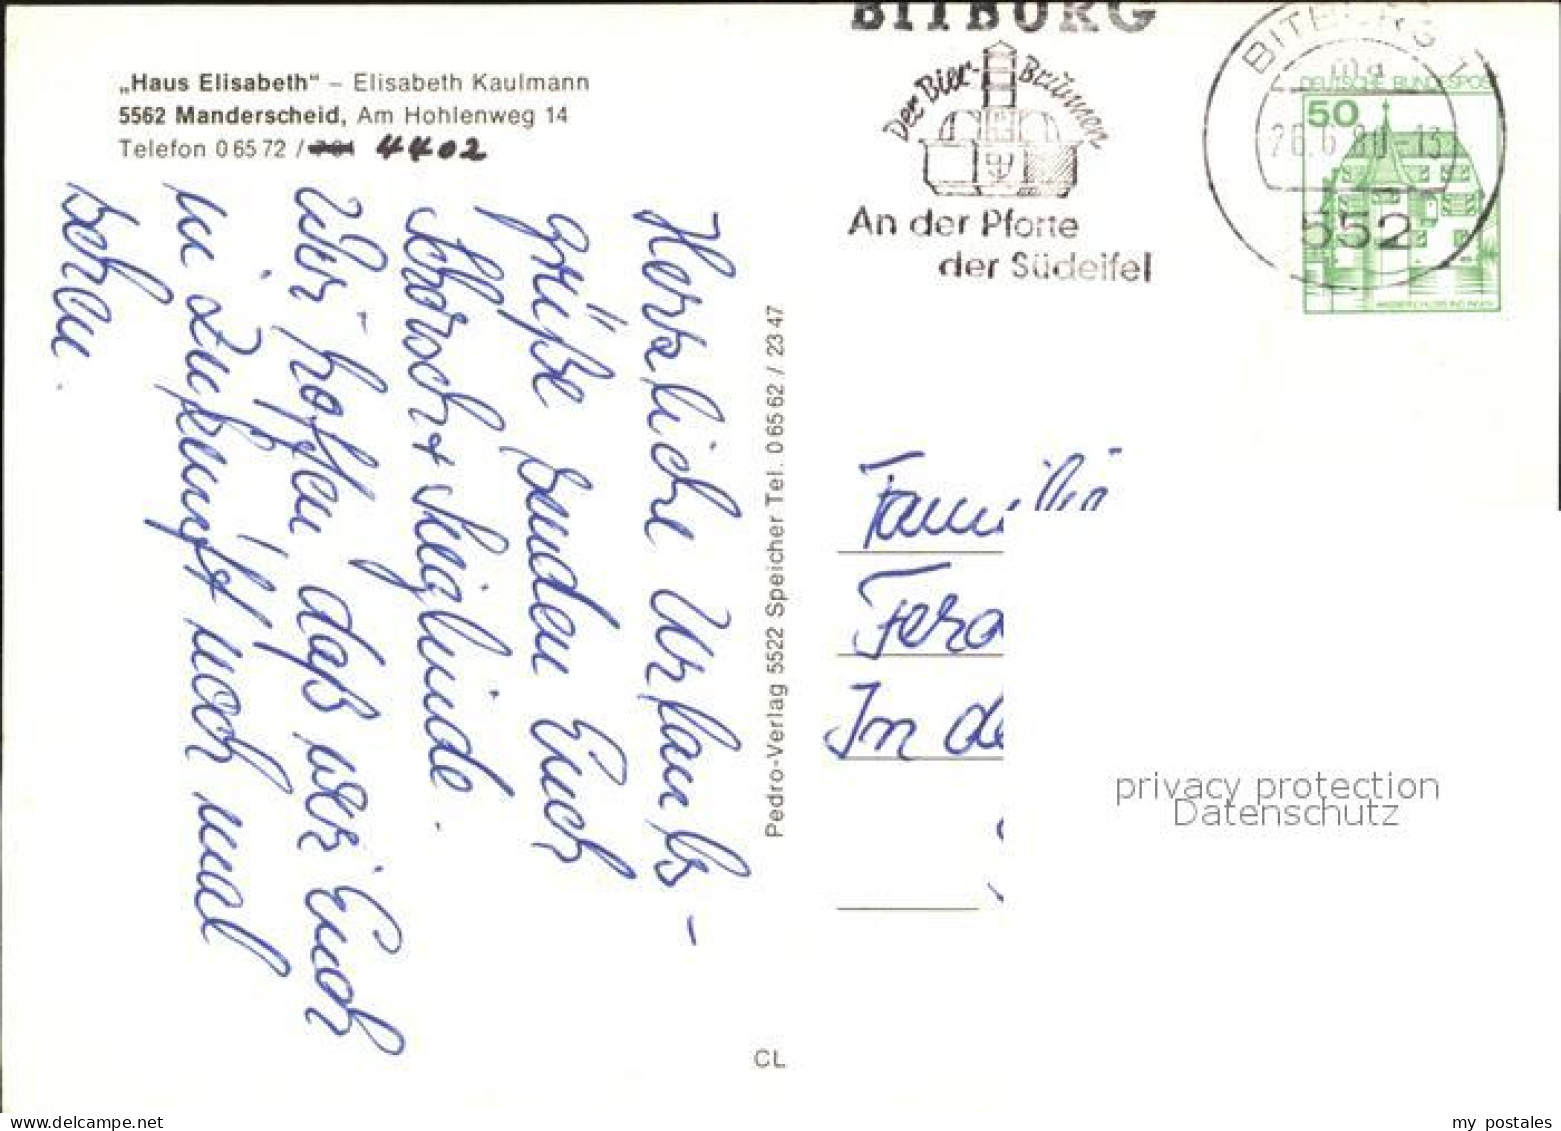 „Haus Elisabeth" – Elisabeth Kaulmann
5562 Manderscheid, Am Hohlenweg 14
Telefon 0 65 72 / 4402
Herzliche Urlaubs-
grüße senden Euch
Schorsch + Sieglinde.
Wir hoffen daß wir Euch
in Zukunft noch mal
sehen.
Pedro-Verlag 5522 Speicher Tel. 0 65 62 / 23 47
CL
BITBURG
Der Bier-Brunnen
An der Pforte
der Südeifel
BITBURG 1
26.6.80-13
552
DEUTSCHE BUNDESPOST
50
WASSERSCHLOSS INZLINGEN
Famili
Fer
In de
privacy protection
Datenschutz
my postales